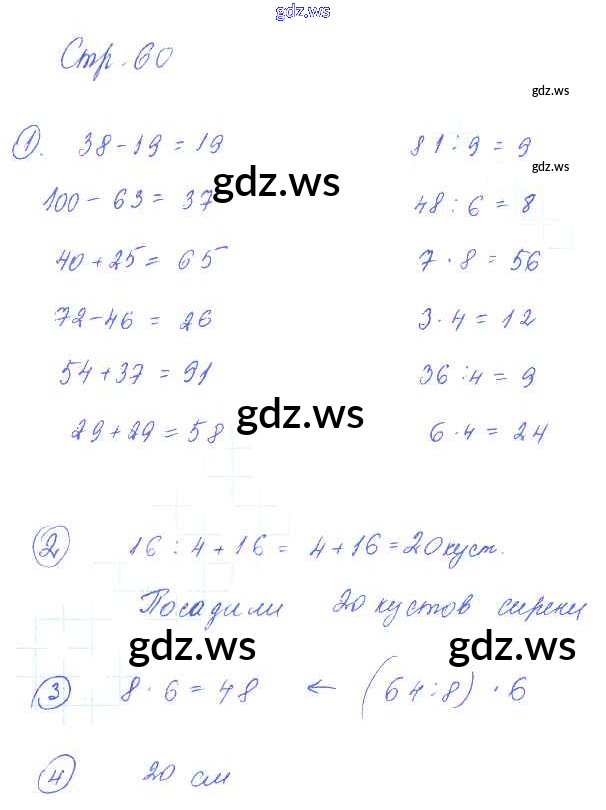 gdz.ws
Стр. 60
gdz.ws
1. 38 - 19 = 19 81 : 9 = 9
gdz.ws
100 - 63 = 37 48 : 6 = 8
gdz.ws
40 + 25 = 65 7 · 8 = 56
72 - 46 = 26 3 · 4 = 12
54 + 37 = 91 36 : 4 = 9
gdz.ws
29 + 29 = 58 6 · 4 = 24
2 16 : 4 + 16 = 4 + 16 = 20 куст.
Посадили 20 кустов сирени
gdz.ws gdz.ws
3 8 · 6 = 48 ← (64 : 8) · 6
4 20 см